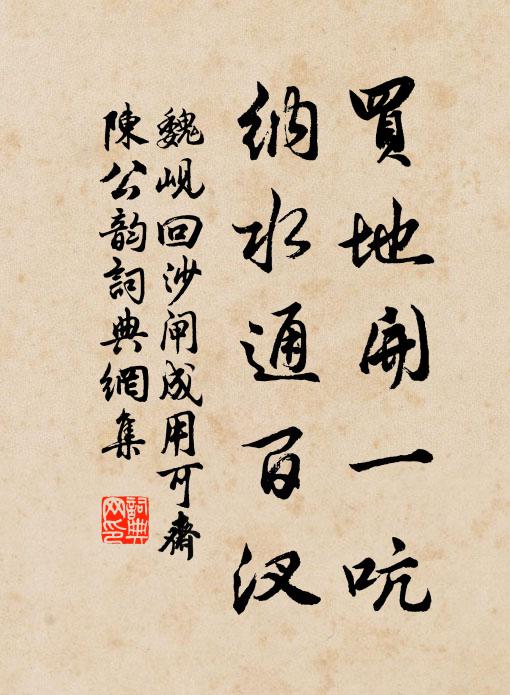 買地開一吭
納水通百汊
魏峴回沙闸成用可齋
陳公韵詞典網集
詞典网印